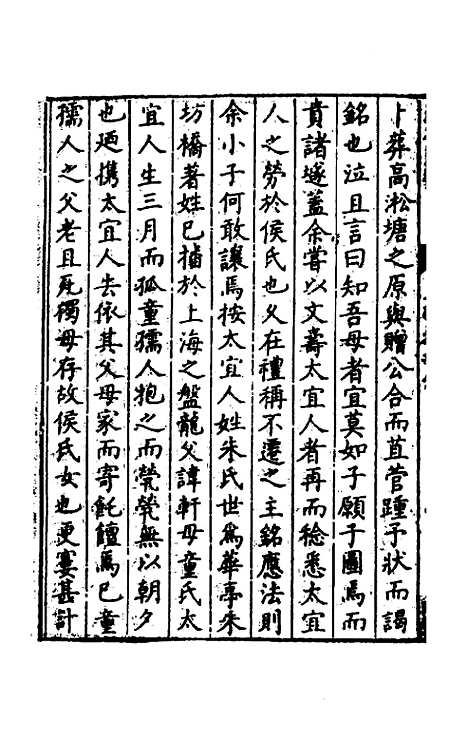 卜葬高淞塘之原與贈公合而苴菅踵予狀而謁
銘也泣且言曰知吾母者宜莫如子願子圖焉而
賁諸墜蓋余嘗以文壽太宜人者再而稔悉太宜
人之勞於侯氏也久在禮稱不遷之主銘應法則
余小子何敢讓焉按太宜人姓朱氏世爲華亭朱
坊橋著姓已揷於上海之盤龍父諱軒母童氏太
宜人生三月而孤童孺人抱之而煢煢無以朝夕
也廼携太宜人去依其父母家而寄飥饘焉已童
孺人之父老且死獨母存故侯氏女也更寠甚計